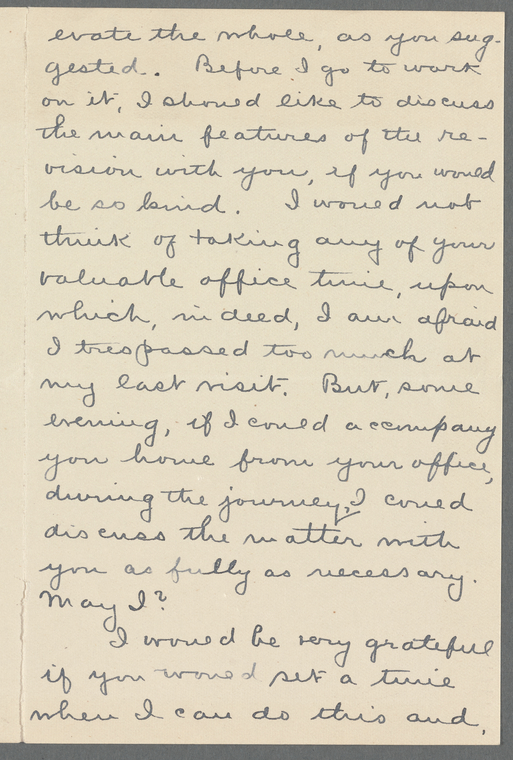 evate the whole, as you sug-
gested. Before I go to work
on it, I should like to discuss
the main features of the re-
vision with you, if you would
be so kind. I would not
think of taking any of your
valuable office time, upon
which, indeed, I am afraid
I trespassed too much at
my last visit. But, some
evening, if I could accompany
you home from your office,
during the journey, I could
discuss the matter with
you as fully as necessary.
May I?
I would be very grateful
if you would set a time
when I can do this and,